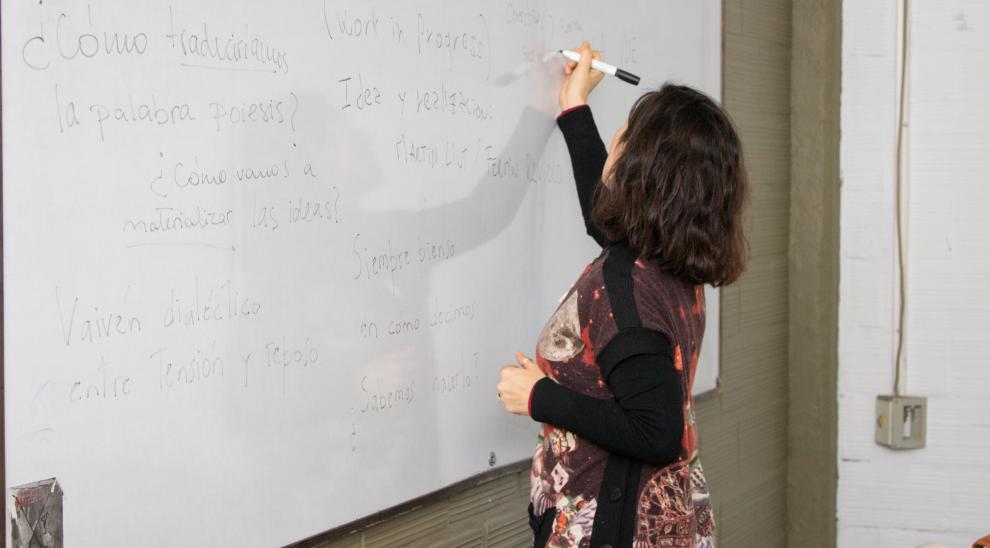 ¿Cómo traduciríamos
la palabra poiesis?
¿Cómo vamos a
materializar las ideas?
Vaivén dialéctico
entre Tensión y reposo
(Work in Progress)
Idea y realización:
MARTIN
Siempre pienso
en cómo decimos
¿Sabemos hacerlo?
¿